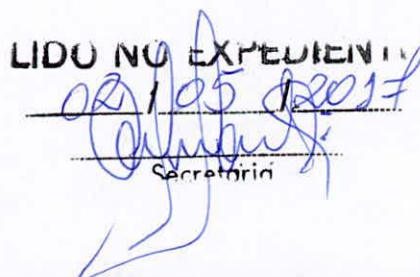 LIDO NO EXPEDIENTE
02 / 05 / 2017
Secretário